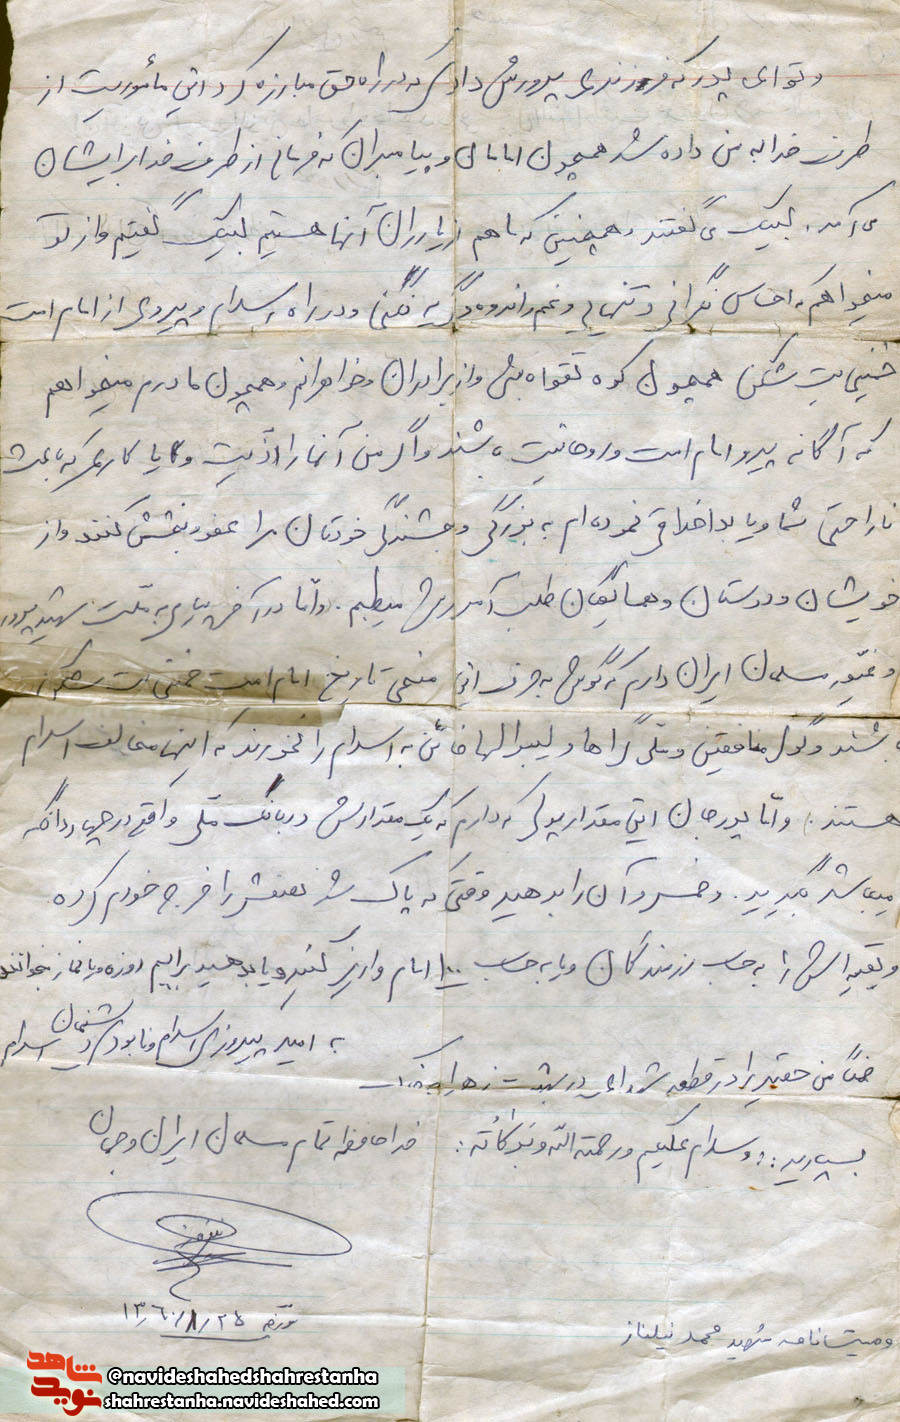 و تو ای پدر که فرزندی پرورش دادی که در راه حق مبارزه کرد این مأموریت از
طرف خدا به من داده شد همچون امامان و پیامبران که فرمانی از طرف خدا برایشان
می آمد، لبیک می گفتند و همچنین که ما هم از یاران آنها هستیم لبیک گفتیم و از تو
میخواهم که احساس نگرانی و تنهایی و غم و اندوه و گریه نکنی و در راه اسلام و پیروی از امام امت
خمینی بت شکن همچون کوه تقواه باش و از برادران و خواهرانم و همچون مادرم میخواهم
که آگانه پیرو امام امت و روحانیت باشند و اگر من آنها را اذیت و یا کاری که باعث
ناراحتی شما و یا بداخلاقی نموده ام به بزرگی و بخشندگی خودتان مرا عفو و بخشش کنند و از
خویشان و دوستان و همسایگان طلب آمرزش میطلبم. و اما در آخر پیامی به ملت شهید پرور
و غیور مسلمان ایران دارم که گوش به حرف این منجی تاریخ امام امت خمینی بت شکن
باشند و گول منافقین و ملی گراها و لیبرالها خائن به اسلام را نخورند که اینها مخالف اسلام
هستند. و اما پدر جان این مقدار پولی که دارم که یک مقدارش در بانک ملی واقع در چهاردانگه
میباشد بگیرید. و خمس و آن را بدهید وقتی که پاک شد نصفش را خرج خودم کرده
و بقیه اش را به حساب رزمندگان و یا به حساب ۱۰۰ امام واریز کنید و یا بدهید برایم روزه و یا نماز بخوانند
به امید پیروزی اسلام و نابودی دشمنان اسلام
ضمناً من حقیر را در قطعه شهدای در بهشت زهرا به خاک
بسپارید:: و سلام علیکم و رحمته الله و برکاته: خدا حافظ تمام مسلمان ایران و جهان
مورخه ۱۳۶۰/۸/۲۵
وصیتنامه شهید محمد نیلناز
شاهد
نوید
@navideshahedshahrestanha
shahrestanha.navideshahed.com